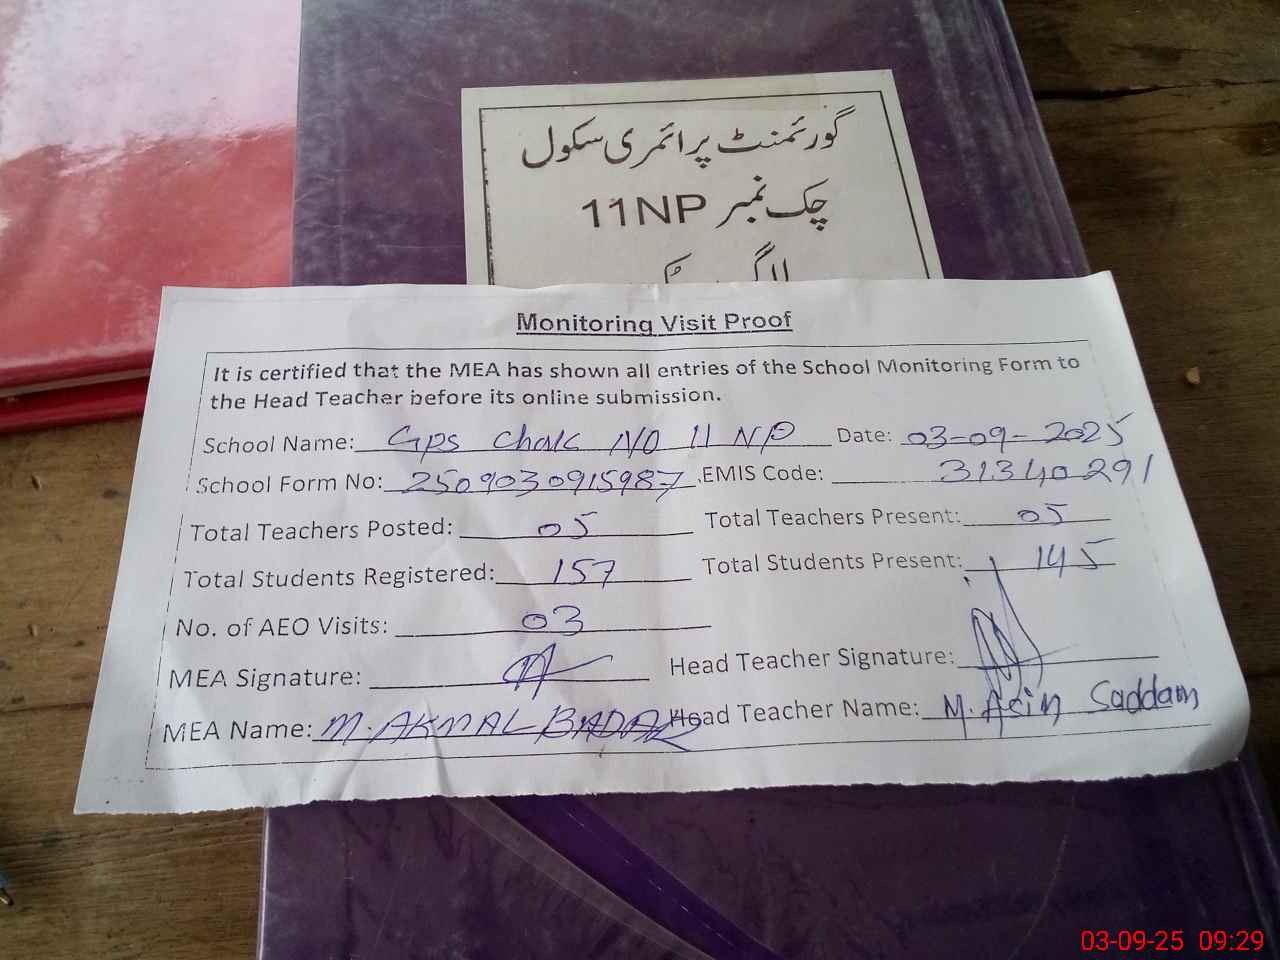 گورنمنٹ پرائمری سکول
چک نمبر 11NP
Monitoring Visit Proof
It is certified that the MEA has shown all entries of the School Monitoring Form to
the Head Teacher before its online submission.
School Name: GPS Chak NO 11 NP Date: 03-09-2025
School Form No: 2509030915987 EMIS Code: 31340291
Total Teachers Posted: 05 Total Teachers Present: 05
Total Students Registered: 157 Total Students Present: 145
No. of AEO Visits: 03
MEA Signature: Head Teacher Signature:
MEA Name: M. AKMAL BADAR Head Teacher Name: M. Asin Saddam
03-09-25 09:29